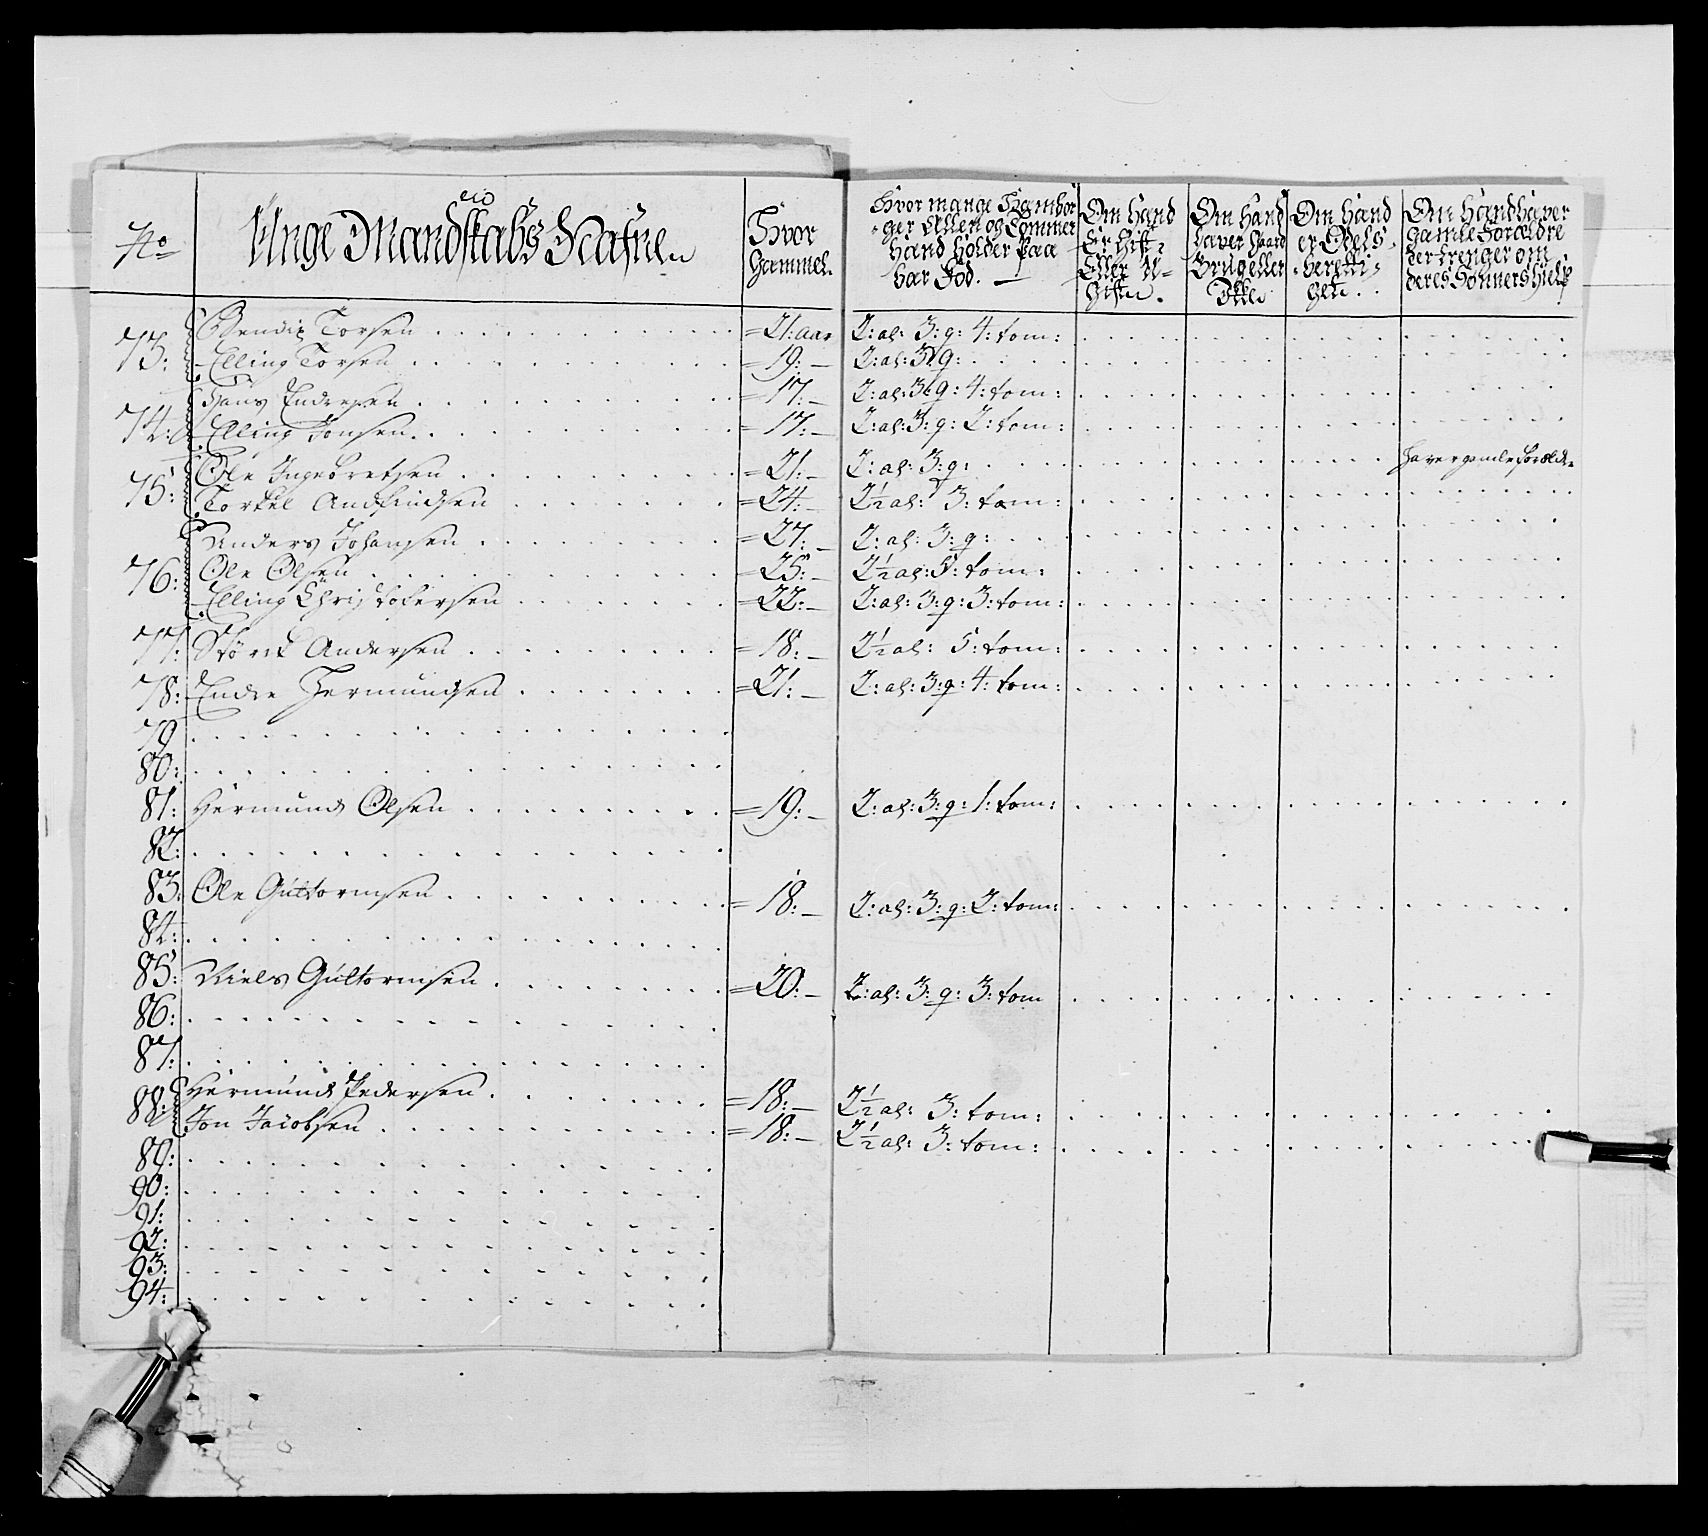 No
Unge Mandskabs Nafne
Hvor
Gammel.
Hvor mange
Allen og Tommer
Hand holder Paa
bar Fod.
Om Hand
Er Gift
Eller U-
Gift.
Om Hand
haver Gaard
Brug eller
Ikke
Om Hand
er Odels
beretti-
get.
Om Hand haver
gamle Forældre
der trenger om
deres Sønners hielp
73: Bendix Torsen =21: aar 2: al: 3: q: 4: tom:
Elling Torsen =19:- 2: al: 3 q:
74: Hans Endresen =17:- 2: al: 3: q: 4: tom:
Elling Jonsen =17:- 2: al: 3: q: 2: tom:
75: Ole Ingebretsen =21:- 2: al: 3: q: haver gamle forældre
Torkel Andfindsen =24:- 2½ al: 3: tom:
76: Anders Johansen =27:- 2: al: 3: q:
Ole Olsen =25:- 2½ al: 5: tom:
Elling Christofersen =22:- 2: al: 3: q: 3: tom:
77: Størk Andersen =18:- 2½ al: 5: tom:
78: Endre Hermundsen =21:- 2: al: 3: q: 4: tom:
79
80:
81: Hermund Olsen =19:- 2: al: 3: q: 1: tom:
82:
83: Ole Guttormsen =18:- 2: al: 3: q: 2: tom:
84:
85: Niels Guttormsen =20:- 2: al: 3: q: 3: tom
86:
87:
88: Hermund Pedersen =18:- 2½ al: 3: tom:
Jon Jacobsen =18:- 2½ al: 3: tom:
89:
90:
91:
92:
93:
94: